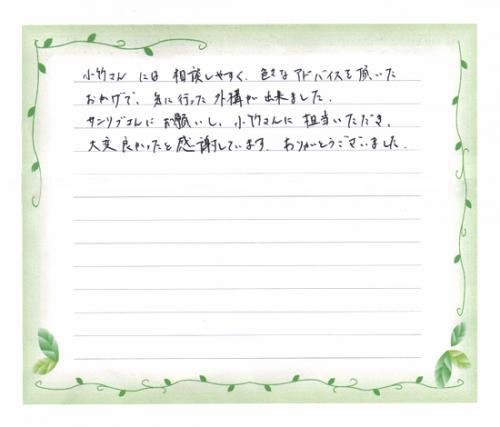 小竹さんには 相談しやすく、色々なアドバイスを頂いた
おかげで、気に行った外構が出来ました。
サンリブさんにお願いし、小竹さんに担当いただき、
大変良かったと感謝しています。ありがとうございました。